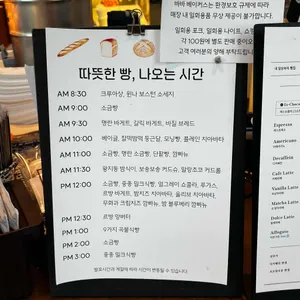 바바 베이커스는 환경보호 규제에 따라
매장 내 일회용품 무상 제공이 불가합니다.
일회용 포크, 일회용 나이프,
각 100원에 별도 판매 중이오
고객 여러분의 양해 부탁드립
따뜻한 빵, 나오는 시간
AM 8:30 크루아상, 퀸나 보스턴 소세지
AM 9:00 소금빵
AM 9:30 명란 바게트, 갈릭 바게트, 바질 브레드
AM 10:00 베이글, 찰떡밤떡 둥근달, 모닝빵, 플레인 치아바타
AM 11:00 소금빵, 명란 소금빵, 단팥빵, 깜빠뉴
AM 11:30 왕자몽 밤식이, 보송보송 커드슈, 말랑초코 커드롤
PM 12:00 소금빵, 쫑쫑 밀크식빵, 얼그레이 쇼콜라, 루가스,
르방 바게트, 밤치즈 치아바타, 올리브 치아바타,
무화과 크림치즈 깜빠뉴, 밤 블루베리 깜빠뉴
PM 12:30 르방 앙버터
PM 1:00 9가지 곡물식빵
PM 2:00 소금빵
PM 3:00 쫑쫑 밀크식빵
발효시간과 계절에 따라 시간이 변동될 수 있습니다.
Espresso
Americano
Decaffeine
Cafe Latte
Vanilla Latte
Matcha Latte
Dolce Latte
Affogato